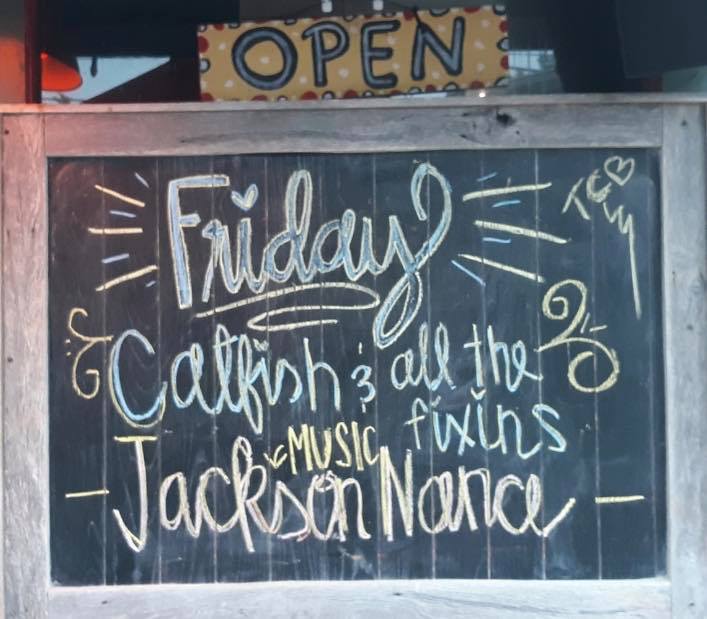 OPEN
Friday
TCB
Catfish & all the
fixins
MUSIC
Jackson Nance